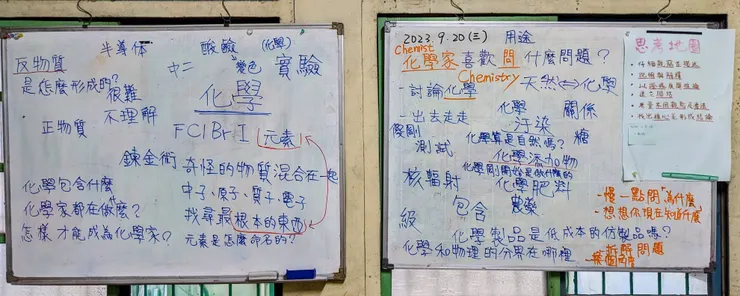 半導體
酸鹼
(化學)
反物質
中二
變色
實驗
是怎麼形成的?
很難
不理解
化學
正物質
FClBrI
元素
鍊金術
奇怪的物質混合在一起
化學包含什麼
中子、原子、質子、電子
化學家都在做麼?
找尋最根本的東西
怎樣才能成為化學家?
元素是怎麼命名的?
2023.9.20(三)
用途
Chemist
化學家喜歡問什麼問題?
Chemistry
-討論化學
天然⇔化學
化學
關係
-出去走走
汙染
化學算是自然嗎?
測試
化學添加物
化學剛開始是做什麼的
核輻射
化學肥料
農藥
包含
級
化學製品是低成本的仿製品嗎?
化學和物理的分界在哪裡
-慢一點問"為什麼"
-想想你現在知道什麼
-拆解問題
思考地圖